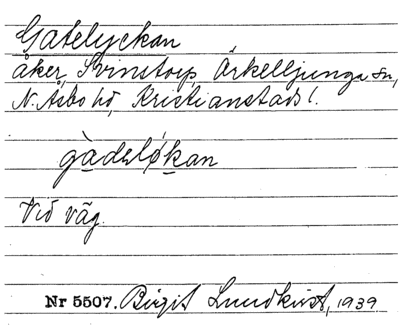 Gatelyckan
åker, Svinstorp, Örkelljunga sn,
N. Åsbo hd, Kristianstads l.
gàdeløkan
Vid väg.
Nr 5507. Birgit Lundkvist, 1939